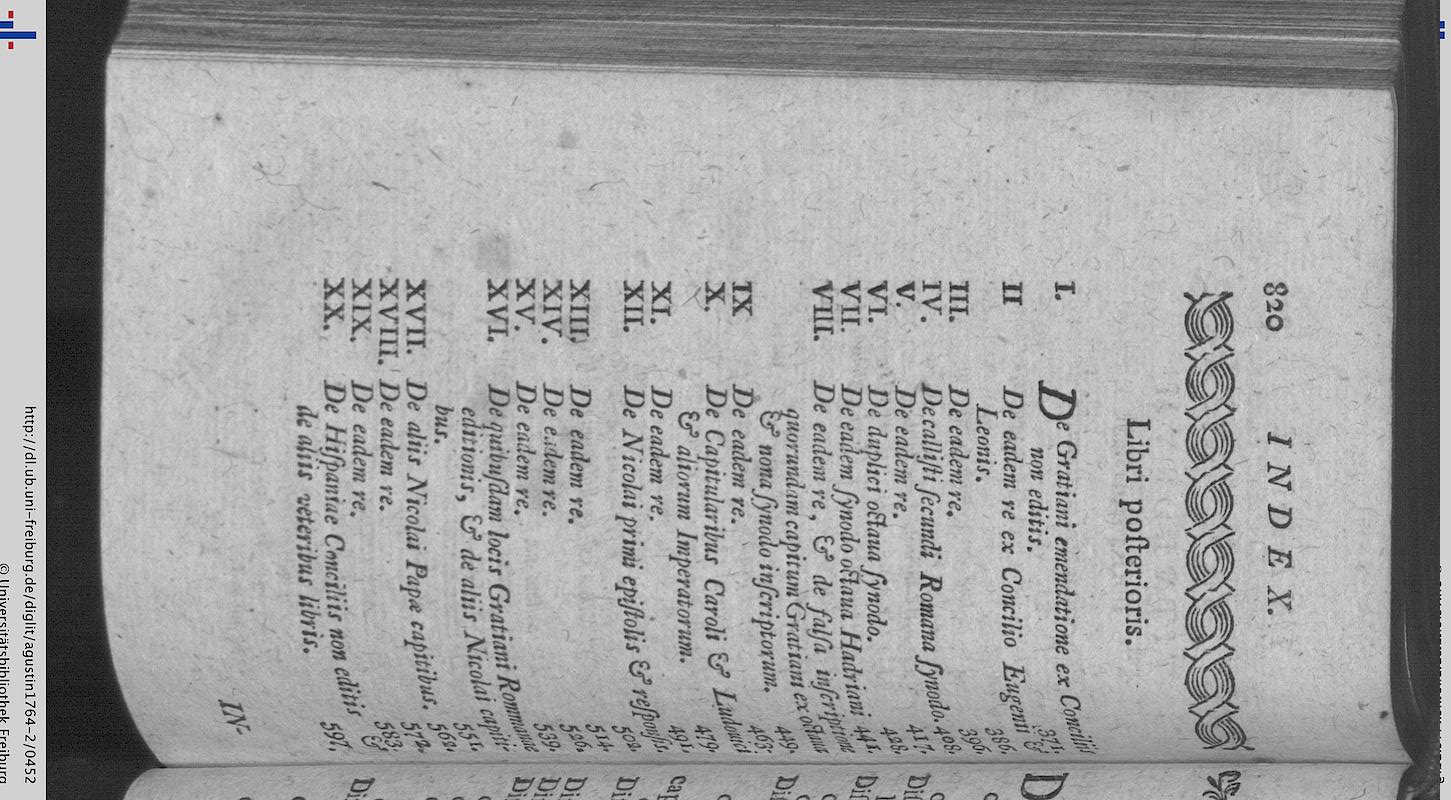 820 INDEX.
Libri poſterioris.
I. De Gratiani emendatione ex Conciliis
non editis. 371.
II De eadem re ex Concilio Eugenii &
Leonis. 386.
III. De eadem re. 396.
IV. De caliſti ſecundi Romana ſynodo. 408.
V. De eadem re. 417.
VI. De duplici octaua ſynodo. 428.
VII. De eadem ſynodo octaua Hadriani. 441.
VIII. De eadem re, & de falſa inſcriptione
quorandam capitum Gratiani ex octaua
& nona ſynodo inſcriptorum. 449.
IX De eadem re. 463.
X. De Capitularibus Caroli & Ludouici
& aliorum Imperatorum. 479.
XI. De eadem re. 491.
XII. De Nicolai primi epiſtolis & reſponſis.
502.
XIII. De eadem re. 514.
XIV. De eadem re. 526.
XV. De eadem re. 539.
XVI. De quibuſdam locis Gratiani Rommanae
editionis, & de aliis Nicolai capiti-
bus. 551.
XVII. De aliis Nicolai Papæ capitibus. 562.
XVIII. De eadem re. 572.
XIX. De eadem re. 583.
XX. De Hiſpaniae Conciliis non editis &
de aliis veteribus libris. 597.
IN-
http://dl.ub.uni-freiburg.de/diglit/agustin1764-2/0452
© Universitätsbibliothek Freiburg